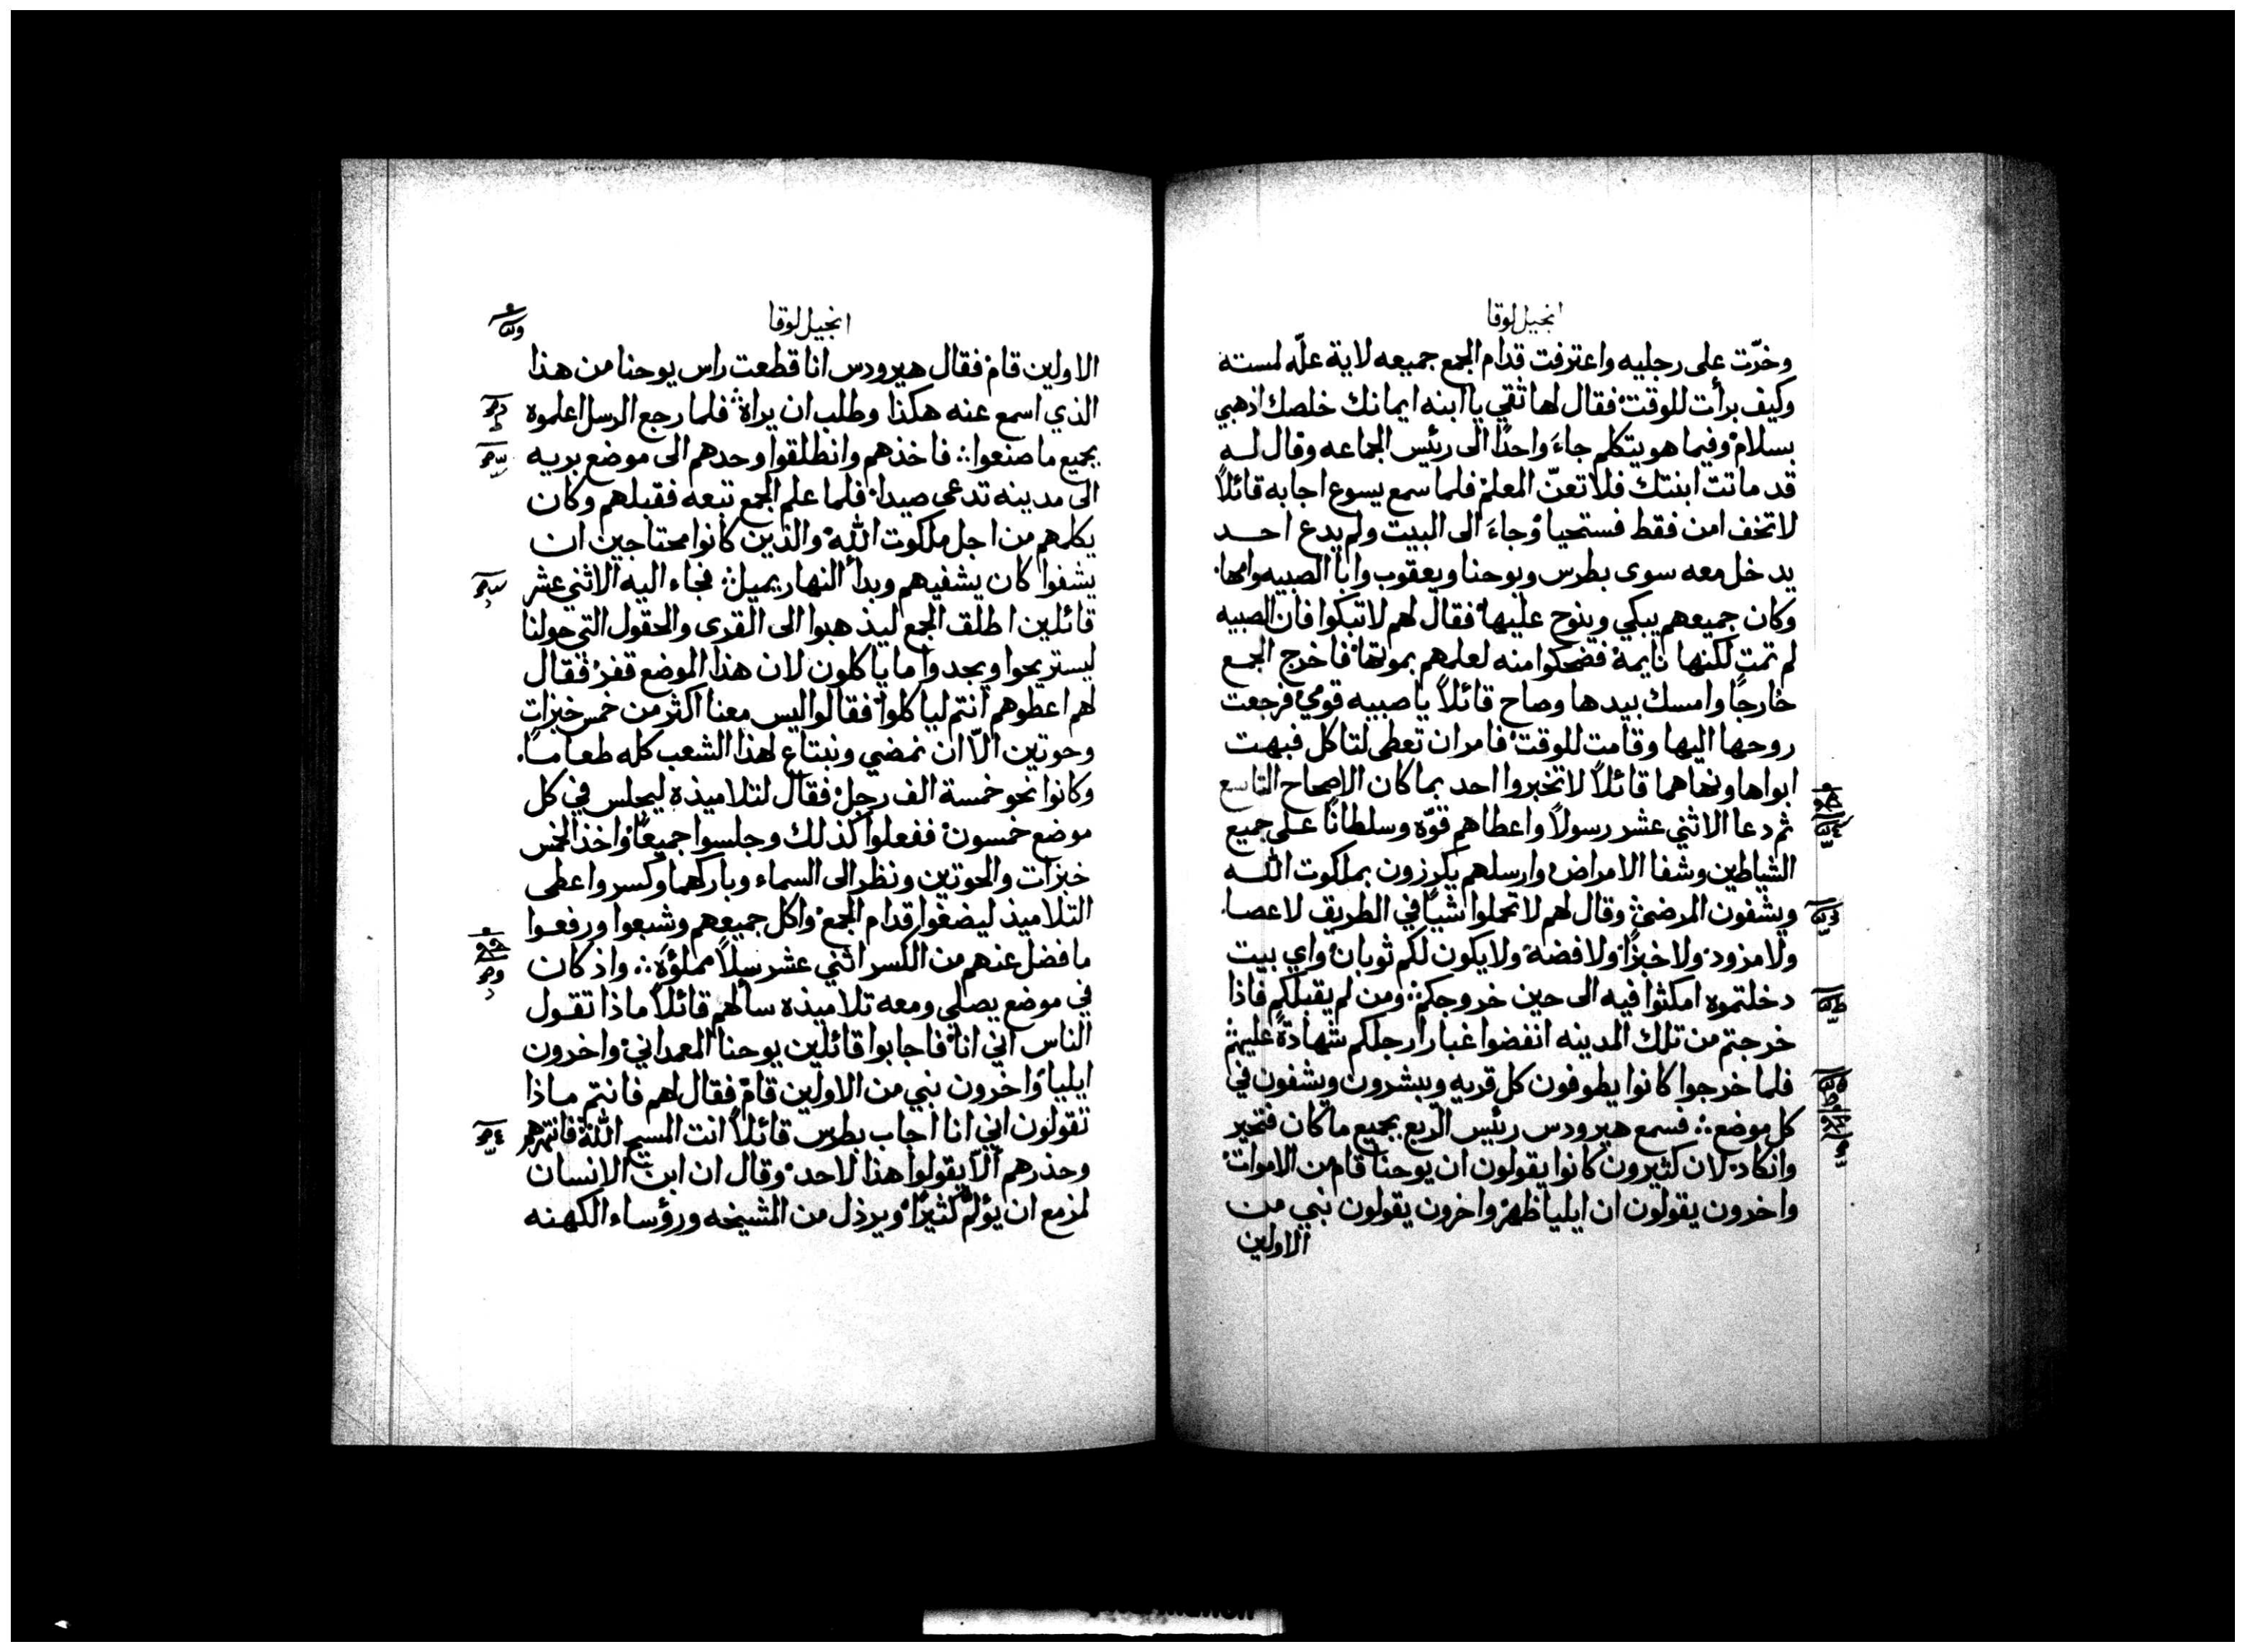 انجيل لوقا
وخرّت على رجليه واعترفت قدام الجمع جميعه لاية علّه لمسته
وكيف برأت للوقت فقال لها ثقي يا ابنه ايمانك خلصك اذهبي
بسلام وفيما هو يتكلم جاءَ واحدًا الى رئيس الجماعه وقال لـه
قد ماتت ابنتك فلا تعنّ المعلم فلما سمع يسوع اجابه قائلاً
لا تخف امن فقط فستحيا وجاءَ الى البيت ولم يدع احـد
يدخل معه سوى بطرس ويوحنا ويعقوب وابا الصبيه وامها
وكان جميعهم يبكي وينوح عليها فقال لهم لا تبكوا فان الصبيه
لم تمت لكنها نايمة فضحكوا منه لعلمهم بموتها فاخرج الجمع
خارجًا وامسك بيدها وصاح قائلاً يا صبيه قومي فرجعت
روحها اليها وقامت للوقت فامر ان تعطى لتاكل فبهت
ابواها ونهاهما قائلاً لا تخبروا احد بما كان الاصحاح التاسع
ثم دعا الاثني عشر رسولاً واعطاهم قوّه وسلطانًا على جميع
الشياطين وشفا الامراض وارسلهم يكرزون بملكوت اللـه
ويشفون المرضى وقال لهم لا تحملوا شيًا في الطريق لا عصا
ولا مزود ولا خبزًا ولا فضه ولا يكون لكم ثوبان واي بيت
دخلتموه امكثوا فيه الى حين خروجكم ومن لم يقبلكم فاذا
خرجتم من تلك المدينه انفضوا غبار ارجلكم شهادةً عليهم
فلما خرجوا كانوا يطوفون كل قريه ويبشرون ويشفون في
كل موضع فسمع هيرودس رئيس الربع بجميع ما كان فتحير
وانكاد لان كثيرون كانوا يقولون ان يوحنا قام من الاموات
واخرون يقولون ان ايليا ظهر واخرون يقولون نبي من
الاولين
انجيل لوقا
الاولين قام فقال هيرودس انا قطعت راس يوحنا من هذا
الذي اسمع عنه هكذا وطلب ان يراه فلما رجع الرسل اعلموه
بجميع ما صنعوا فاخذهم وانطلقوا وحدهم الى موضع بريه
الى مدينه تدعى صيدا فلما علم الجمع تبعه فقبلهم وكان
يكلمهم من اجل ملكوت الله والذين كانوا محتاجين ان
يشفوا كان يشفيهم وبدأ النهار يميل فجاء اليه الاثني عشر
قائلين اطلق الجمع ليذهبوا الى القرى والحقول التي حولنا
ليستريحوا ويجدوا ما ياكلون لان هذا الموضع قفر فقال
لهم اعطوهم انتم لياكلوا فقالوا ليس معنا اكثر من خمس خبزات
وحوتين الاّ ان نمضي ونبتاع لهذا الشعب كله طعامًا
وكانوا نحو خمسة الف رجل فقال لتلاميذه ليجلس في كل
موضع خمسون ففعلوا كذلك وجلسوا جميعًا واخذ الخمس
خبزات والحوتين ونظر الى السماء وباركهما وكسر واعطى
التلاميذ ليضعوا قدام الجمع واكل جميعهم وشبعوا ورفعوا
ما فضل عنهم من الكسر اثني عشر سلاً مملؤة واذ كان
في موضع يصلي ومعه تلاميذه سألهم قائلاً ماذا تقول
الناس اني انا فاجابوا قائلين يوحنا المعمداني واخرون
ايليا واخرون نبي من الاولين قام فقال لهم فانتم ماذا
تقولون اني انا اجاب بطرس قائلاً انت المسيح الله فانتهرهم
وحذرهم ألاّ يقولوا هذا لاحد وقال ان ابن الانسان
لمزمع ان يؤلم كثيرًا ويرذل من المشيخه ورؤساء الكهنه